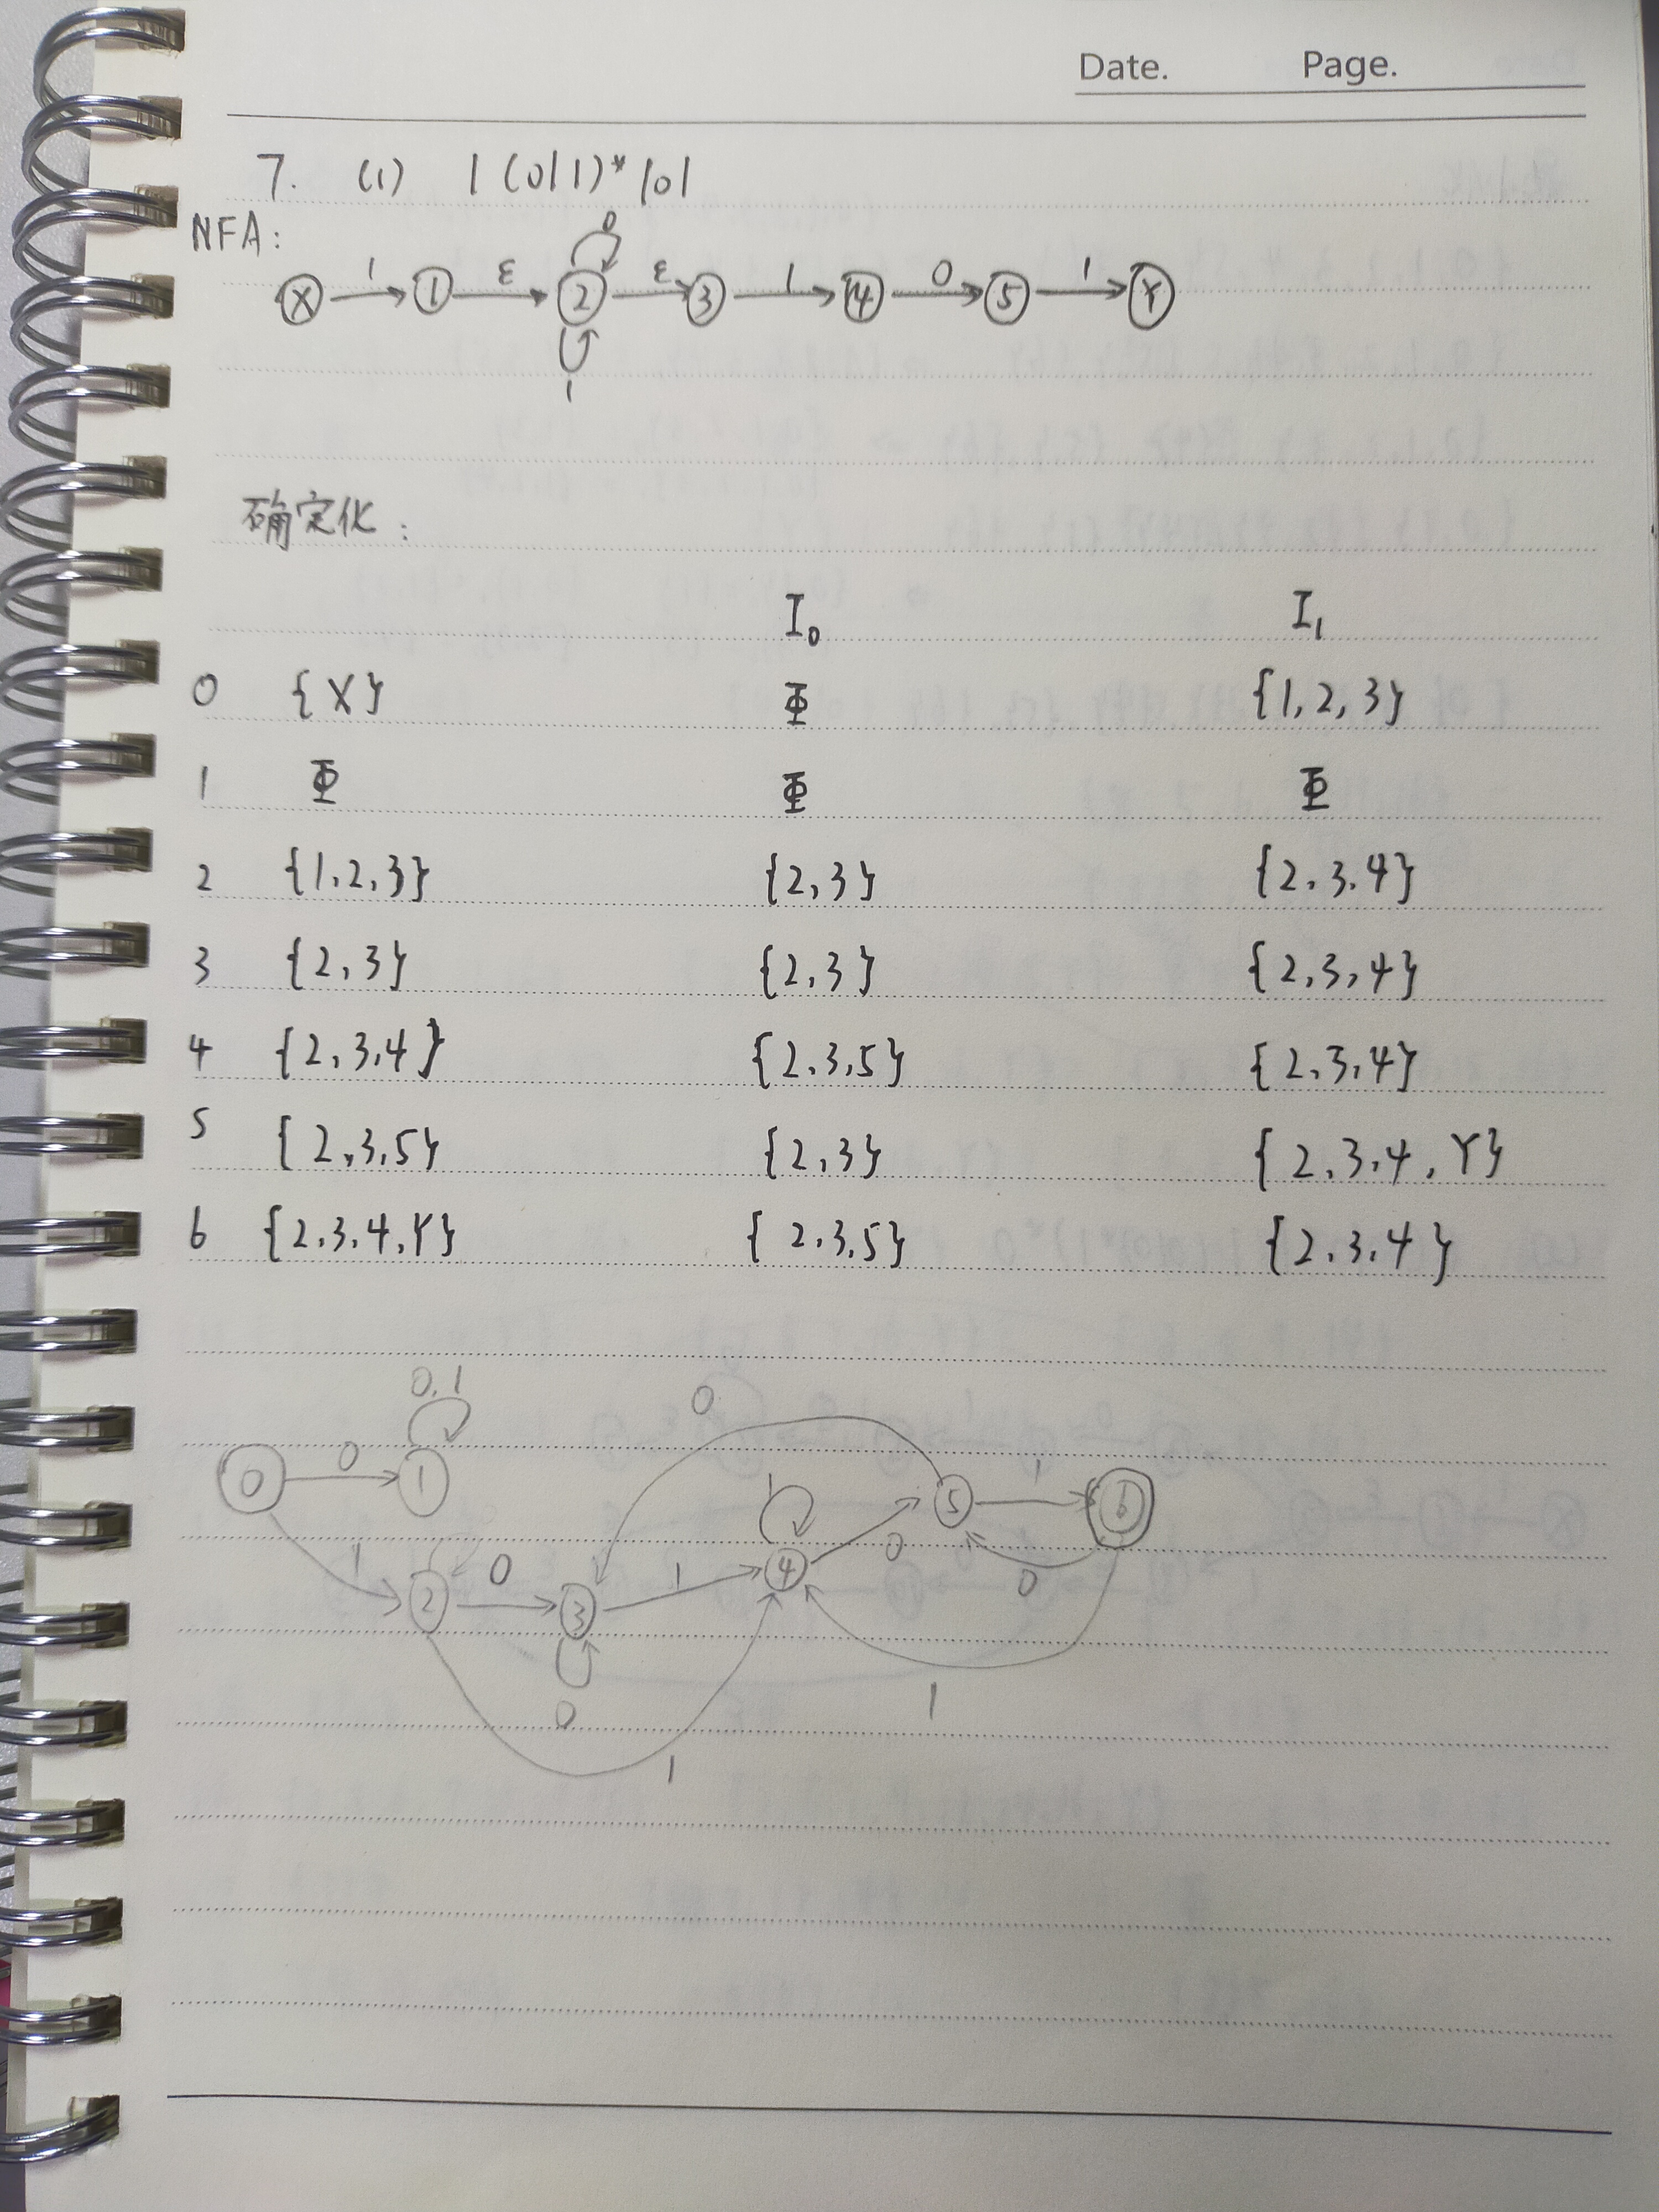 Date. Page.
7. (1) 1(0|1)*101
NFA:
X 1 1 ε 2 0 1 ε 3 1 4 0 5 1 Y
确定化:
I₀ I₁
0 {X} Φ {1,2,3}
1 Φ Φ Φ
2 {1,2,3} {2,3} {2,3,4}
3 {2,3} {2,3} {2,3,4}
4 {2,3,4} {2,3,5} {2,3,4}
5 {2,3,5} {2,3} {2,3,4,Y}
6 {2,3,4,Y} {2,3,5} {2,3,4}
0,1 0
0 0 1 1 5 1 6
1 2 0 3 1 4 0 0
0 1
1